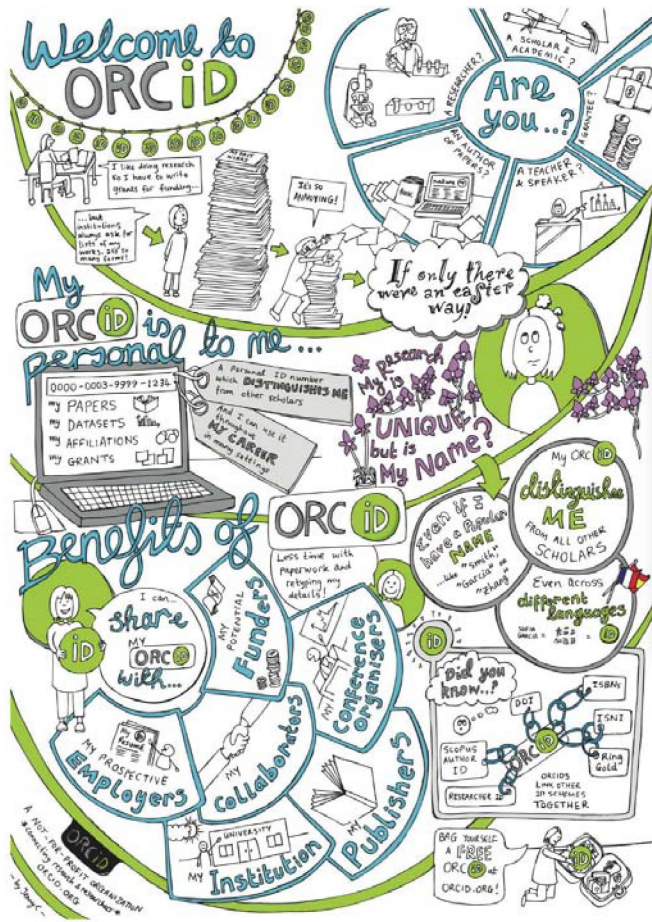 Welcome to
ORCiD
Are
you..?
A RESEARCHER?
A SCHOLAR &
ACADEMIC?
A GRANTEE?
A TEACHER
& SPEAKER?
AN AUTHOR
OF PAPERS?
I like doing research
so I have to write
grants for funding...
...but
institutions
always ask for
lists of my
works. It's so
many forms!
It's SO
ANNOYING!
If only there
were an easier
way!
My
ORCiD is
personal to me...
0000-0003-9999-1234
my PAPERS
my DATASETS
my AFFILIATIONS
my GRANTS
A Personal ID number
which DISTINGUISHES ME
from other scholars
And I can use it
throughout
MY CAREER
in many settings
My research
is
UNIQUE
but is
My Name?
My ORCiD
distinguishes
ME
FROM ALL OTHER
SCHOLARS
Even if I
have a Popular
NAME
...like "Smith,
"Garcia" or
"Zhang"
Even Across
different
languages
SOFIA
GARCIA =
= iD
Benefits of
ORCiD
Less time with
paperwork and
retyping my
details!
iD
I can...
share
MY
ORCiD
with...
MY
POTENTIAL
Funders
MY
Conference
Organisers
My
Resumé
MY PROSPECTIVE
Employers
MY
Collaborators
MY
Publishers
UNIVERSITY
MY
Institution
iD
Did you
know..?
DOI
ISBNs
ISNI
Ring
Gold
SCOPUS
AUTHOR
ID
RESEARCHER ID
ORCiD
ORCIDS
LINK OTHER
ID SCHEMES
TOGETHER
BAG YOURSELF
A FREE
ORCiD at
ORCID.ORG!
iD
ORCiD
A NOT-FOR-PROFIT ORGANIZATION
*connecting research & researchers*
ORCID.ORG